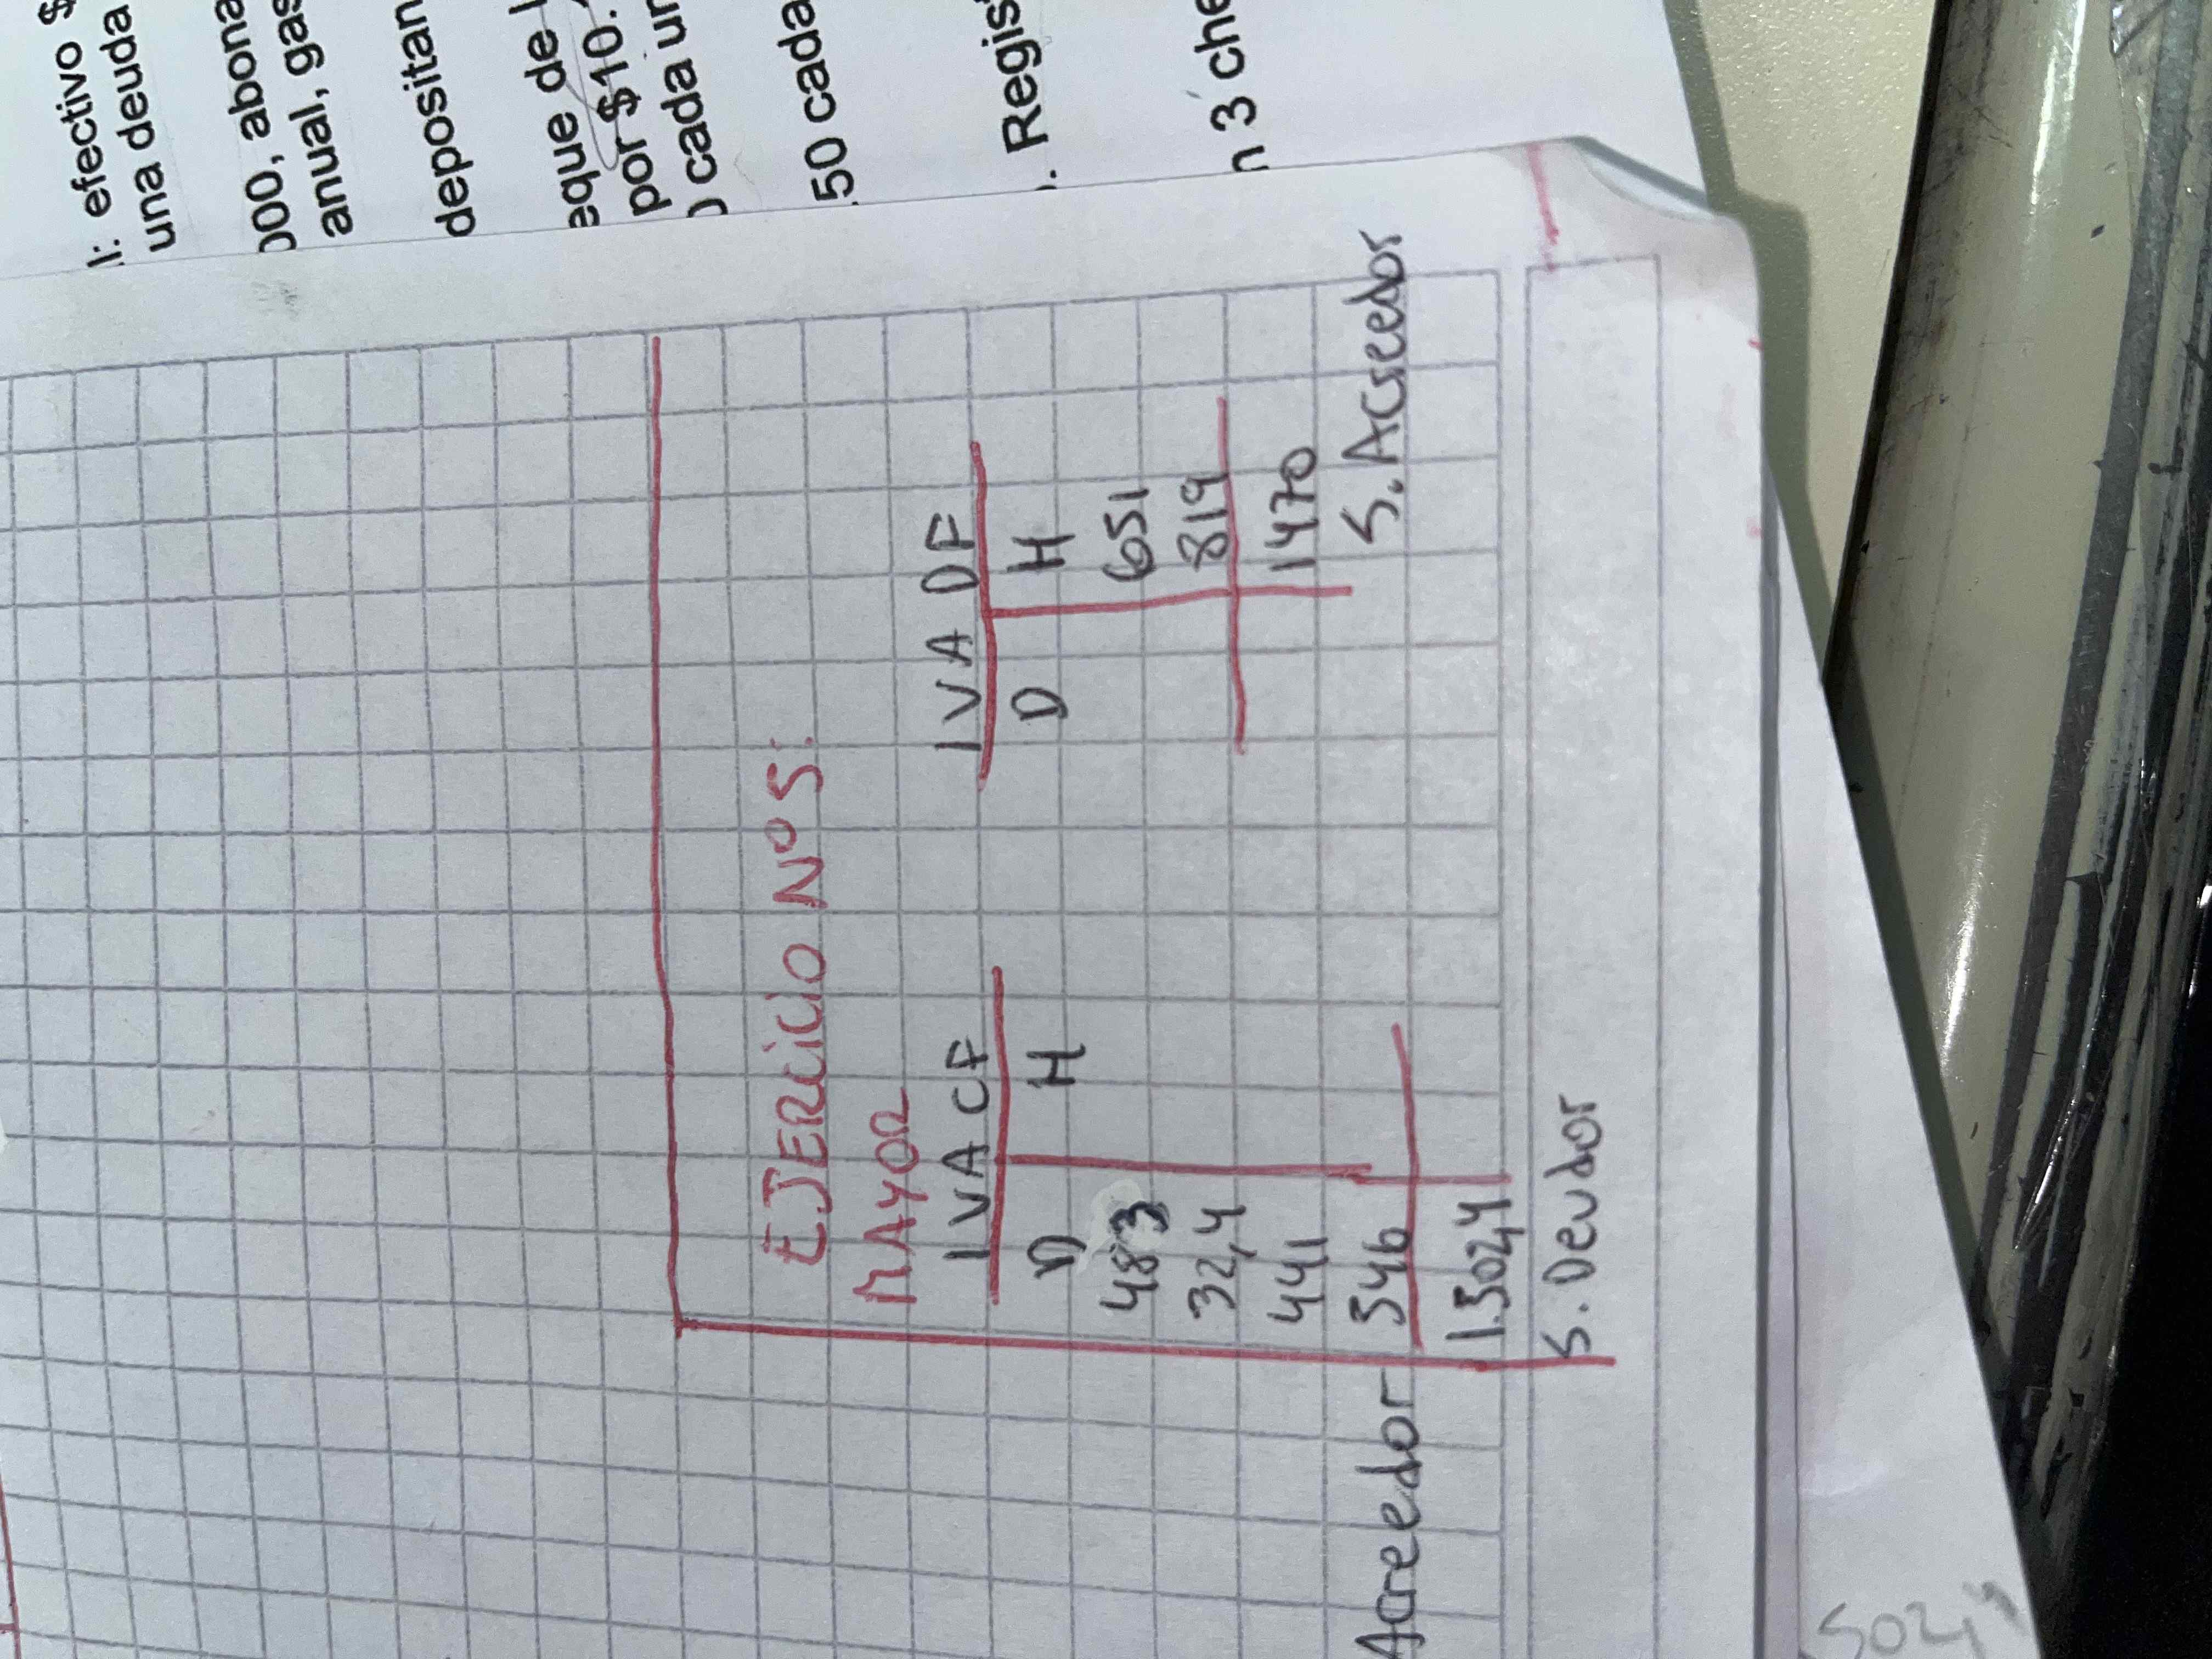 l: efectivo $
una deuda
000, abona
anual, gas
depositan
eque de l
por $10.
cada un
50 cada
. Regis
n 3 che
EJERCICIO N°5:
MAYOR
IVA CF
D H
483
32,4
441
546
1.502,4
S. Deudor
IVA DF
D H
651
819
1470
S. Acreedor
Acreedor
502,4